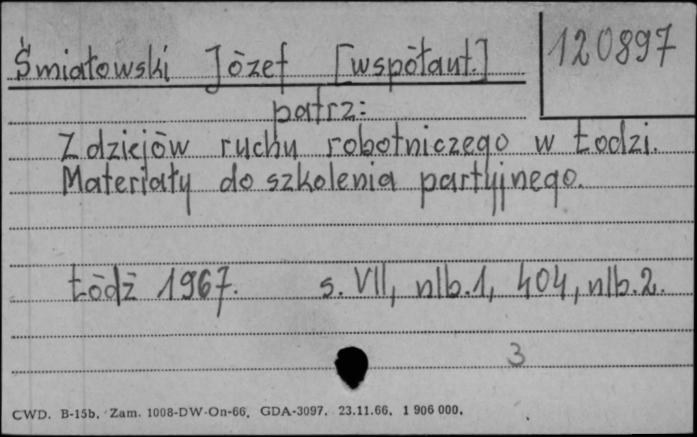 120897
Śmiałowski Józef [współaut.]
patrz:
Z dziejów ruchu robotniczego w Łodzi.
Materiały do szkolenia partyjnego.
Łódź 1967. s. VII, nlb.1, 404, nlb.2.
3
CWD. B-15b. Zam. 1008-DW-On-66. GDA-3097. 23.11.66. 1 906 000.